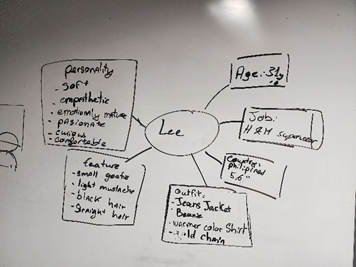 personality
- soft
- empothetic
- emotionally mature
pasionate
- curious
- comfortable
Age: 31y
Lee
Job:
H&H Supervisor
Country:
philipines
5,6"
feature
- small goatie
- light mustache
- black hair
- straight hair
outfit:
- Jeans Jacket
- Beanie
- warmer color Shirt
- gold chain